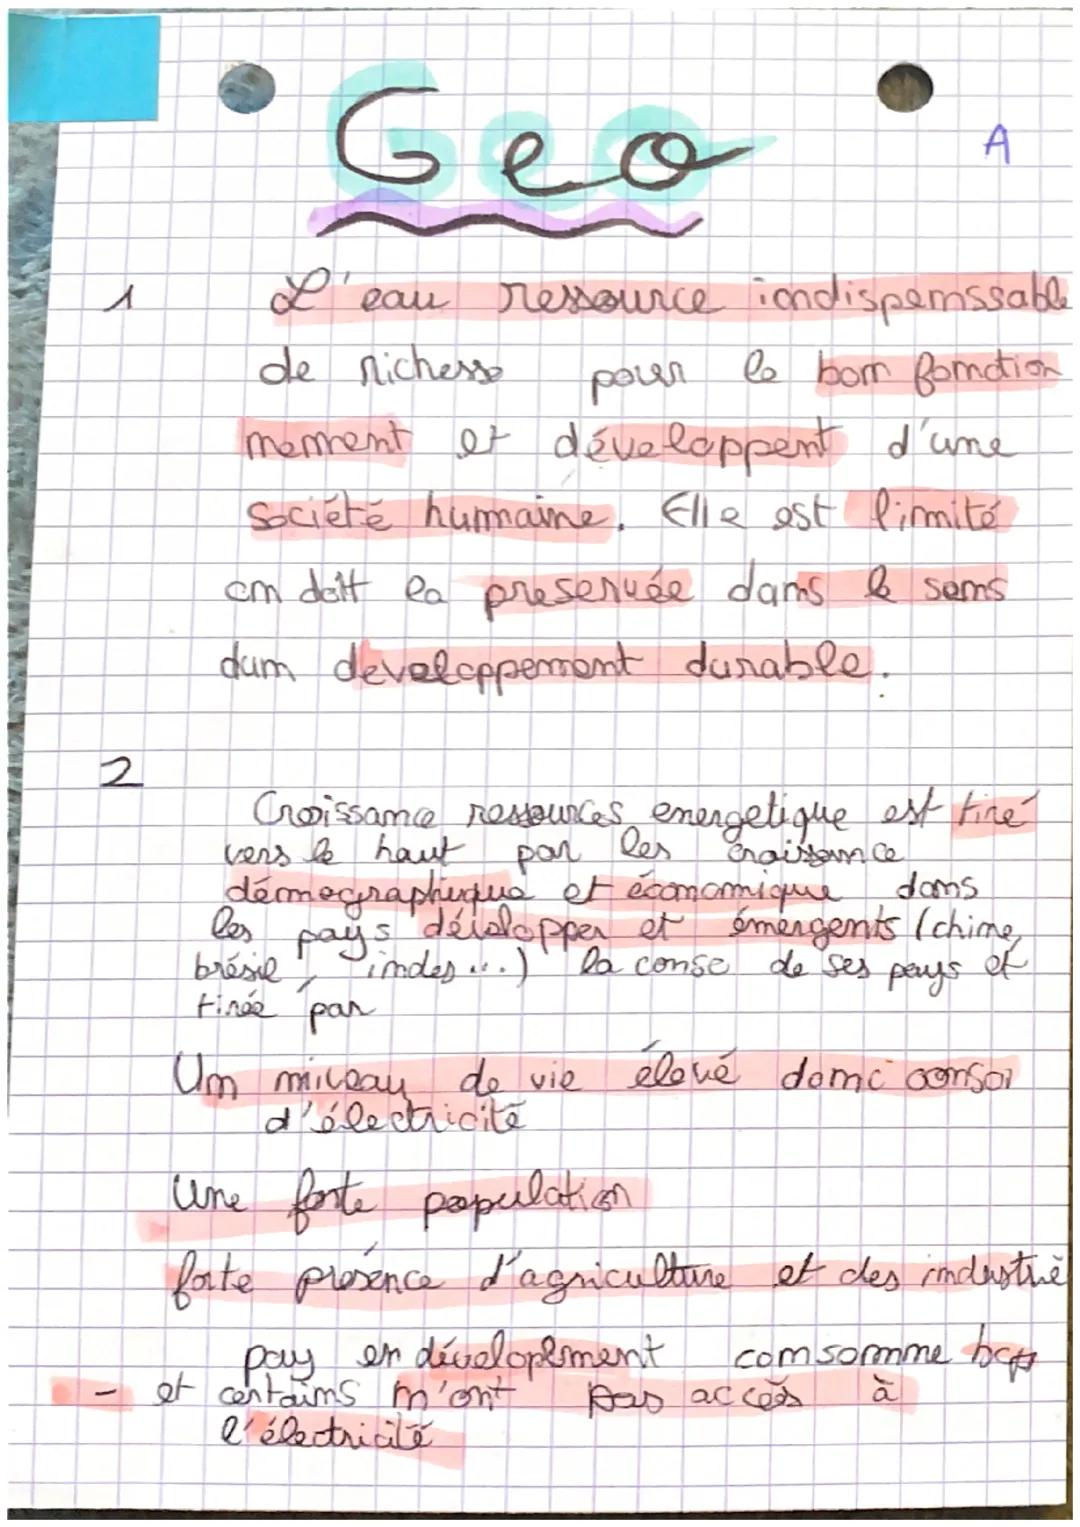 Geo
A
1 L'eau ressource iondispenssable
de richesse pour le bon fonction
nement et développent d'une
société humaine. Elle est limité
on doit la preservée dans le sens
dun developpement durable.
2
Croissance ressources energetique est tiré
vers le haut par les croissance
démographique et économique dans
les pays développer et émergents (chine,
brésil, indes...) la conso de ses pays et
tirée par
Un niveau de vie élevé donc conso
d'électricité
Une forte population
forte présence d'agriculture et des industrie
pay en dévelopement consomme bcp
- et certains n'ont pas accès à
l'électricité